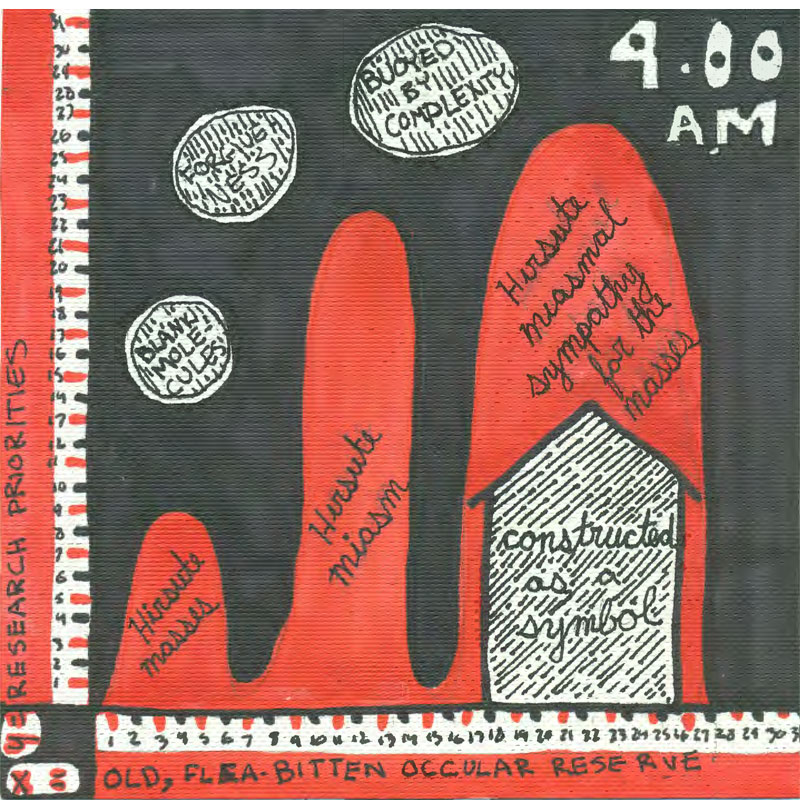 4.00
AM
BUOYED
BY
COMPLEXITY
FORGIVE
NESS
BLANK
MOLE
CULES
Hirsute
miasmal
sympathy
for the
masses
Hirsute
miasm
Hirsute
masses
constructed
as a
symbol
31
30
29
28
27
26
25
24
23
22
21
20
19
18
17
16
15
14
13
12
11
10
9
8
7
6
5
4
3
2
1
Y = RESEARCH PRIORITIES
1 2 3 4 5 6 7 8 9 10 11 12 13 14 15 16 17 18 19 20 21 22 23 24 25 26 27 28 29 30 3
X = OLD, FLEA-BITTEN OCCULAR RESERVE